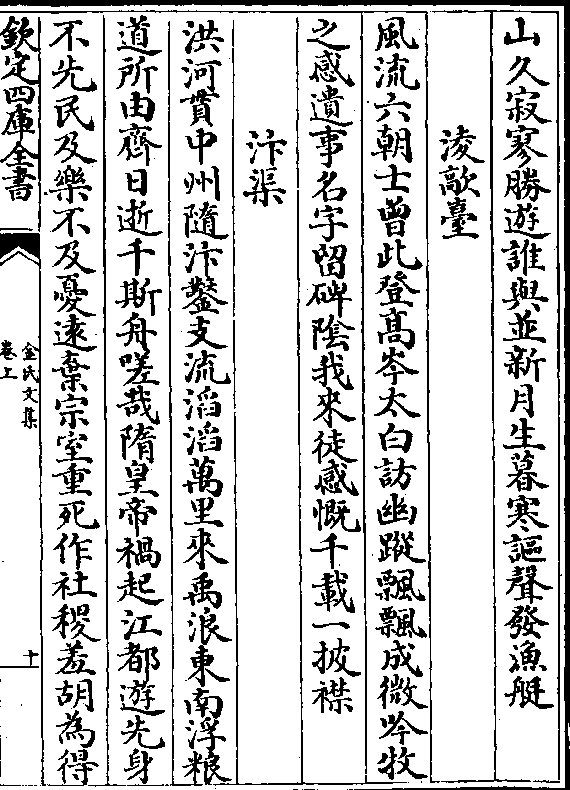 山久寂寥勝遊誰與並新月生暮寒謳聲發漁艇
淩歊臺
風流六朝士曾此登高岑太白訪幽蹤飄飄成微吟牧
之感遺事名字留碑隂我來徒感慨千載一披襟
汴渠
洪河貫中州隨汴鑿支流滔滔萬里來禹浪東南浮粮
道所由齊日逝千斯舟嗟哉隋皇帝禍起江都遊先身
不先民及樂不及憂遠棄宗室重死作社稷羞胡為得
欽定四庫全書
金氏文集
卷上
十